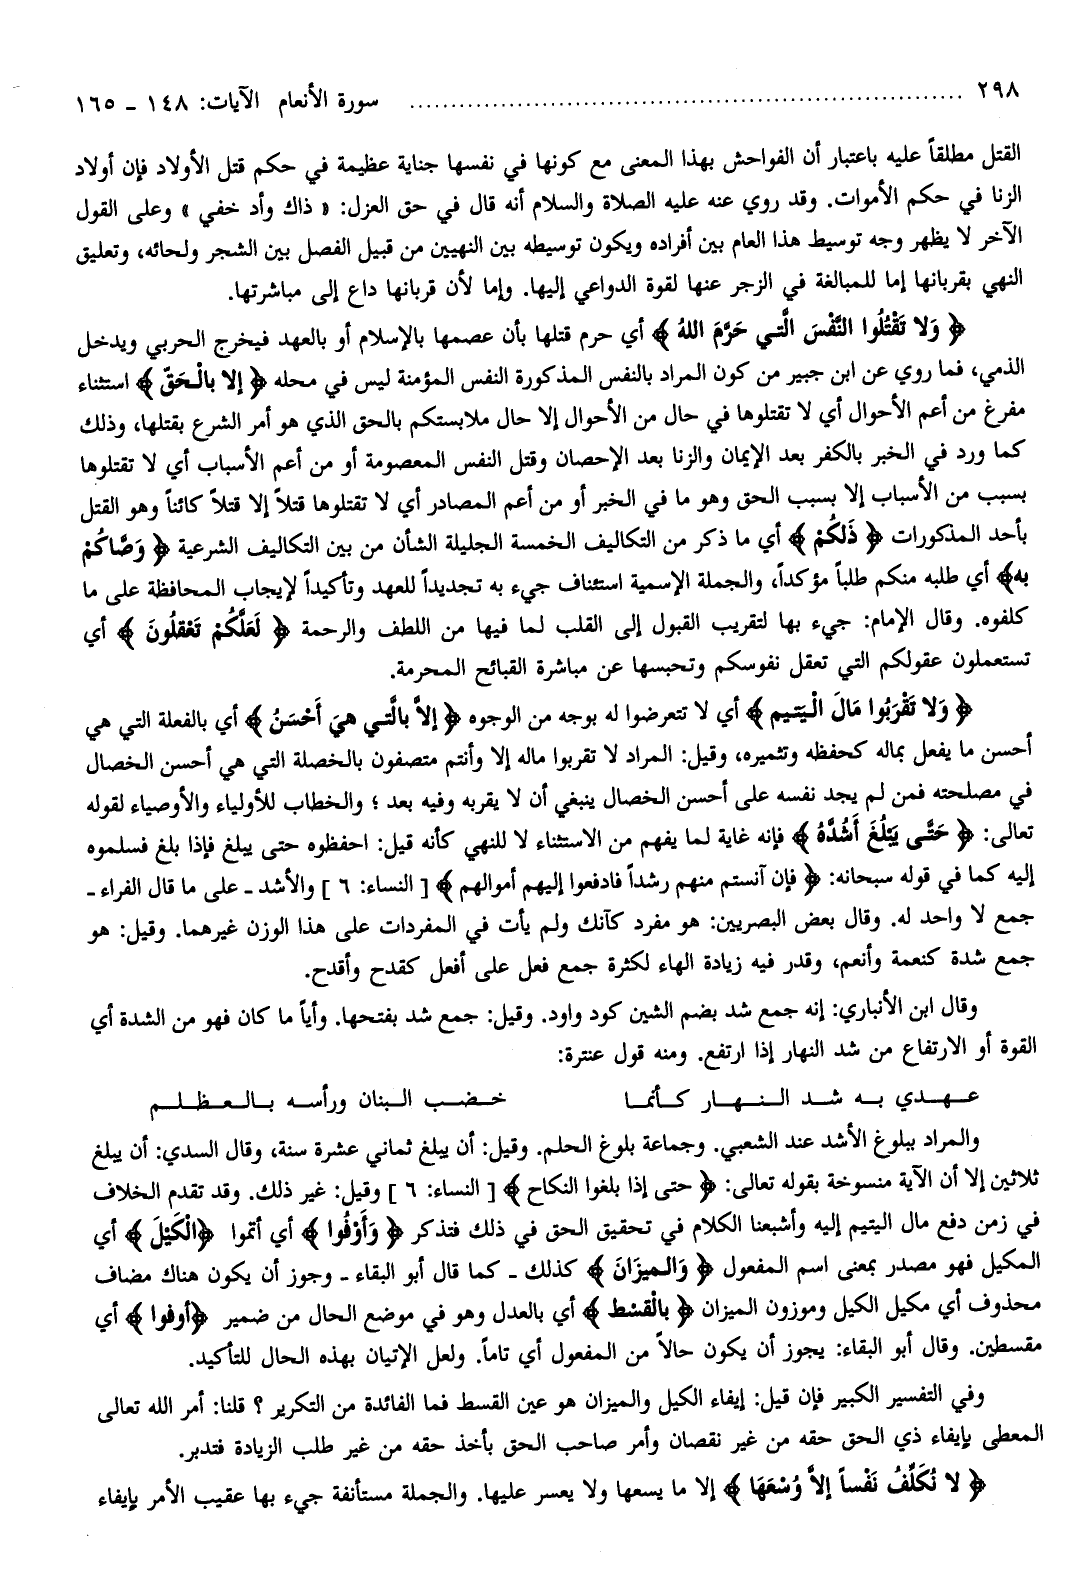 ٢٩٨ ........................................ سورة الأنعام الآيات: ١٤٨ ـ ١٦٥
القتل مطلقاً عليه باعتبار أن الفواحش بهذا المعنى مع كونها في نفسها جناية عظيمة في حكم قتل الأولاد فإن أولاد
الزنا في حكم الأموات. وقد روي عنه عليه الصلاة والسلام أنه قال في حق العزل: « ذاك وأد خفي » وعلى القول
الآخر لا يظهر وجه توسيط هذا العام بين أفراده ويكون توسيطه بين النهيين من قبيل الفصل بين الشجر ولحائه، وتعليق
النهي بقربانها إما للمبالغة في الزجر عنها لقوة الدواعي إليها. وإما لأن قربانها داع إلى مباشرتها.
﴿ وَلا تَقْتُلُوا النَّفْسَ الَّتي حَرَّمَ اللهُ ﴾ أي حرم قتلها بأن عصمها بالإسلام أو بالعهد فيخرج الحربي ويدخل
الذمي، فما روي عن ابن جبير من كون المراد بالنفس المذكورة النفس المؤمنة ليس في محله ﴿ إلا بالْحَقّ ﴾ استثناء
مفرغ من أعم الأحوال أي لا تقتلوها في حال من الأحوال إلا حال ملابستكم بالحق الذي هو أمر الشرع بقتلها، وذلك
كما ورد في الخبر بالكفر بعد الإيمان والزنا بعد الإحصان وقتل النفس المعصومة أو من أعم الأسباب أي لا تقتلوها
بسبب من الأسباب إلا بسبب الحق وهو ما في الخبر أو من أعم المصادر أي لا تقتلوها قتلاً إلا قتلاً كائناً وهو القتل
بأحد المذكورات ﴿ ذَلكُمْ ﴾ أي ما ذكر من التكاليف الخمسة الجليلة الشأن من بين التكاليف الشرعية ﴿ وَصَّاكُمْ
به﴾ أي طلبه منكم طلباً مؤكداً، والجملة الإسمية استئناف جيء به تجديداً للعهد وتأكيداً لإيجاب المحافظة على ما
كلفوه. وقال الإمام: جيء بها لتقريب القبول إلى القلب لما فيها من اللطف والرحمة ﴿ لَعَلَّكُمْ تَعْقلُونَ ﴾ أي
تستعملون عقولكم التي تعقل نفوسكم وتحبسها عن مباشرة القبائح المحرمة.
﴿ وَلا تَقْرَبُوا مَالَ الْيَتيم ﴾ أي لا تتعرضوا له بوجه من الوجوه ﴿ إلاَّ بالَّتي هيَ أَحْسَنُ ﴾ أي بالفعلة التي هي
أحسن ما يفعل بماله كحفظه وتثميره، وقيل: المراد لا تقربوا ماله إلا وأنتم متصفون بالخصلة التي هي أحسن الخصال
في مصلحته فمن لم يجد نفسه على أحسن الخصال ينبغي أن لا يقربه وفيه بعد ؛ والخطاب للأولياء والأوصياء لقوله
تعالى: ﴿ حَتَّى يَبْلُغَ أَشُدَّهُ ﴾ فإنه غاية لما يفهم من الاستثناء لا للنهي كأنه قيل: احفظوه حتى يبلغ فإذا بلغ فسلموه
إليه كما في قوله سبحانه: ﴿ فإن آنستم منهم رشداً فادفعوا إليهم أموالهم ﴾ [ النساء: ٦ ] والأشد ـ على ما قال الفراء ـ
جمع لا واحد له. وقال بعض البصريين: هو مفرد كآنك ولم يأت في المفردات على هذا الوزن غيرهما. وقيل: هو
جمع شدة كنعمة وأنعم، وقدر فيه زيادة الهاء لكثرة جمع فعل على أفعل كقدح وأقدح.
وقال ابن الأنباري: إنه جمع شد بضم الشين كود واود. وقيل: جمع شد بفتحها. وأياً ما كان فهو من الشدة أي
القوة أو الارتفاع من شد النهار إذا ارتفع. ومنه قول عنترة:
عهدي به شد النهار كأنما خضب البنان ورأسه بالعظلم
والمراد ببلوغ الأشد عند الشعبي. وجماعة بلوغ الحلم. وقيل: أن يبلغ ثماني عشرة سنة، وقال السدي: أن يبلغ
ثلاثين إلا أن الآية منسوخة بقوله تعالى: ﴿ حتى إذا بلغوا النكاح ﴾ [ النساء: ٦ ] وقيل: غير ذلك. وقد تقدم الخلاف
في زمن دفع مال اليتيم إليه وأشبعنا الكلام في تحقيق الحق في ذلك فتذكر ﴿ وَأَوْفُوا ﴾ أي أتموا ﴿الْكَيْلَ ﴾ أي
المكيل فهو مصدر بمعنى اسم المفعول ﴿ وَالميزَانَ ﴾ كذلك ـ كما قال أبو البقاء ـ وجوز أن يكون هناك مضاف
محذوف أي مكيل الكيل وموزون الميزان ﴿ بالْقسْط ﴾ أي بالعدل وهو في موضع الحال من ضمير ﴿أوفوا ﴾ أي
مقسطين. وقال أبو البقاء: يجوز أن يكون حالاً من المفعول أي تاماً. ولعل الإتيان بهذه الحال للتأكيد.
وفي التفسير الكبير فإن قيل: إيفاء الكيل والميزان هو عين القسط فما الفائدة من التكرير ؟ قلنا: أمر الله تعالى
المعطى بإيفاء ذي الحق حقه من غير نقصان وأمر صاحب الحق بأخذ حقه من غير طلب الزيادة فتدبر.
﴿ لا نُكَلِّفُ نَفْساً إلاَّ وُسْعَهَا ﴾ إلا ما يسعها ولا يعسر عليها. والجملة مستأنفة جيء بها عقيب الأمر بإيفاء